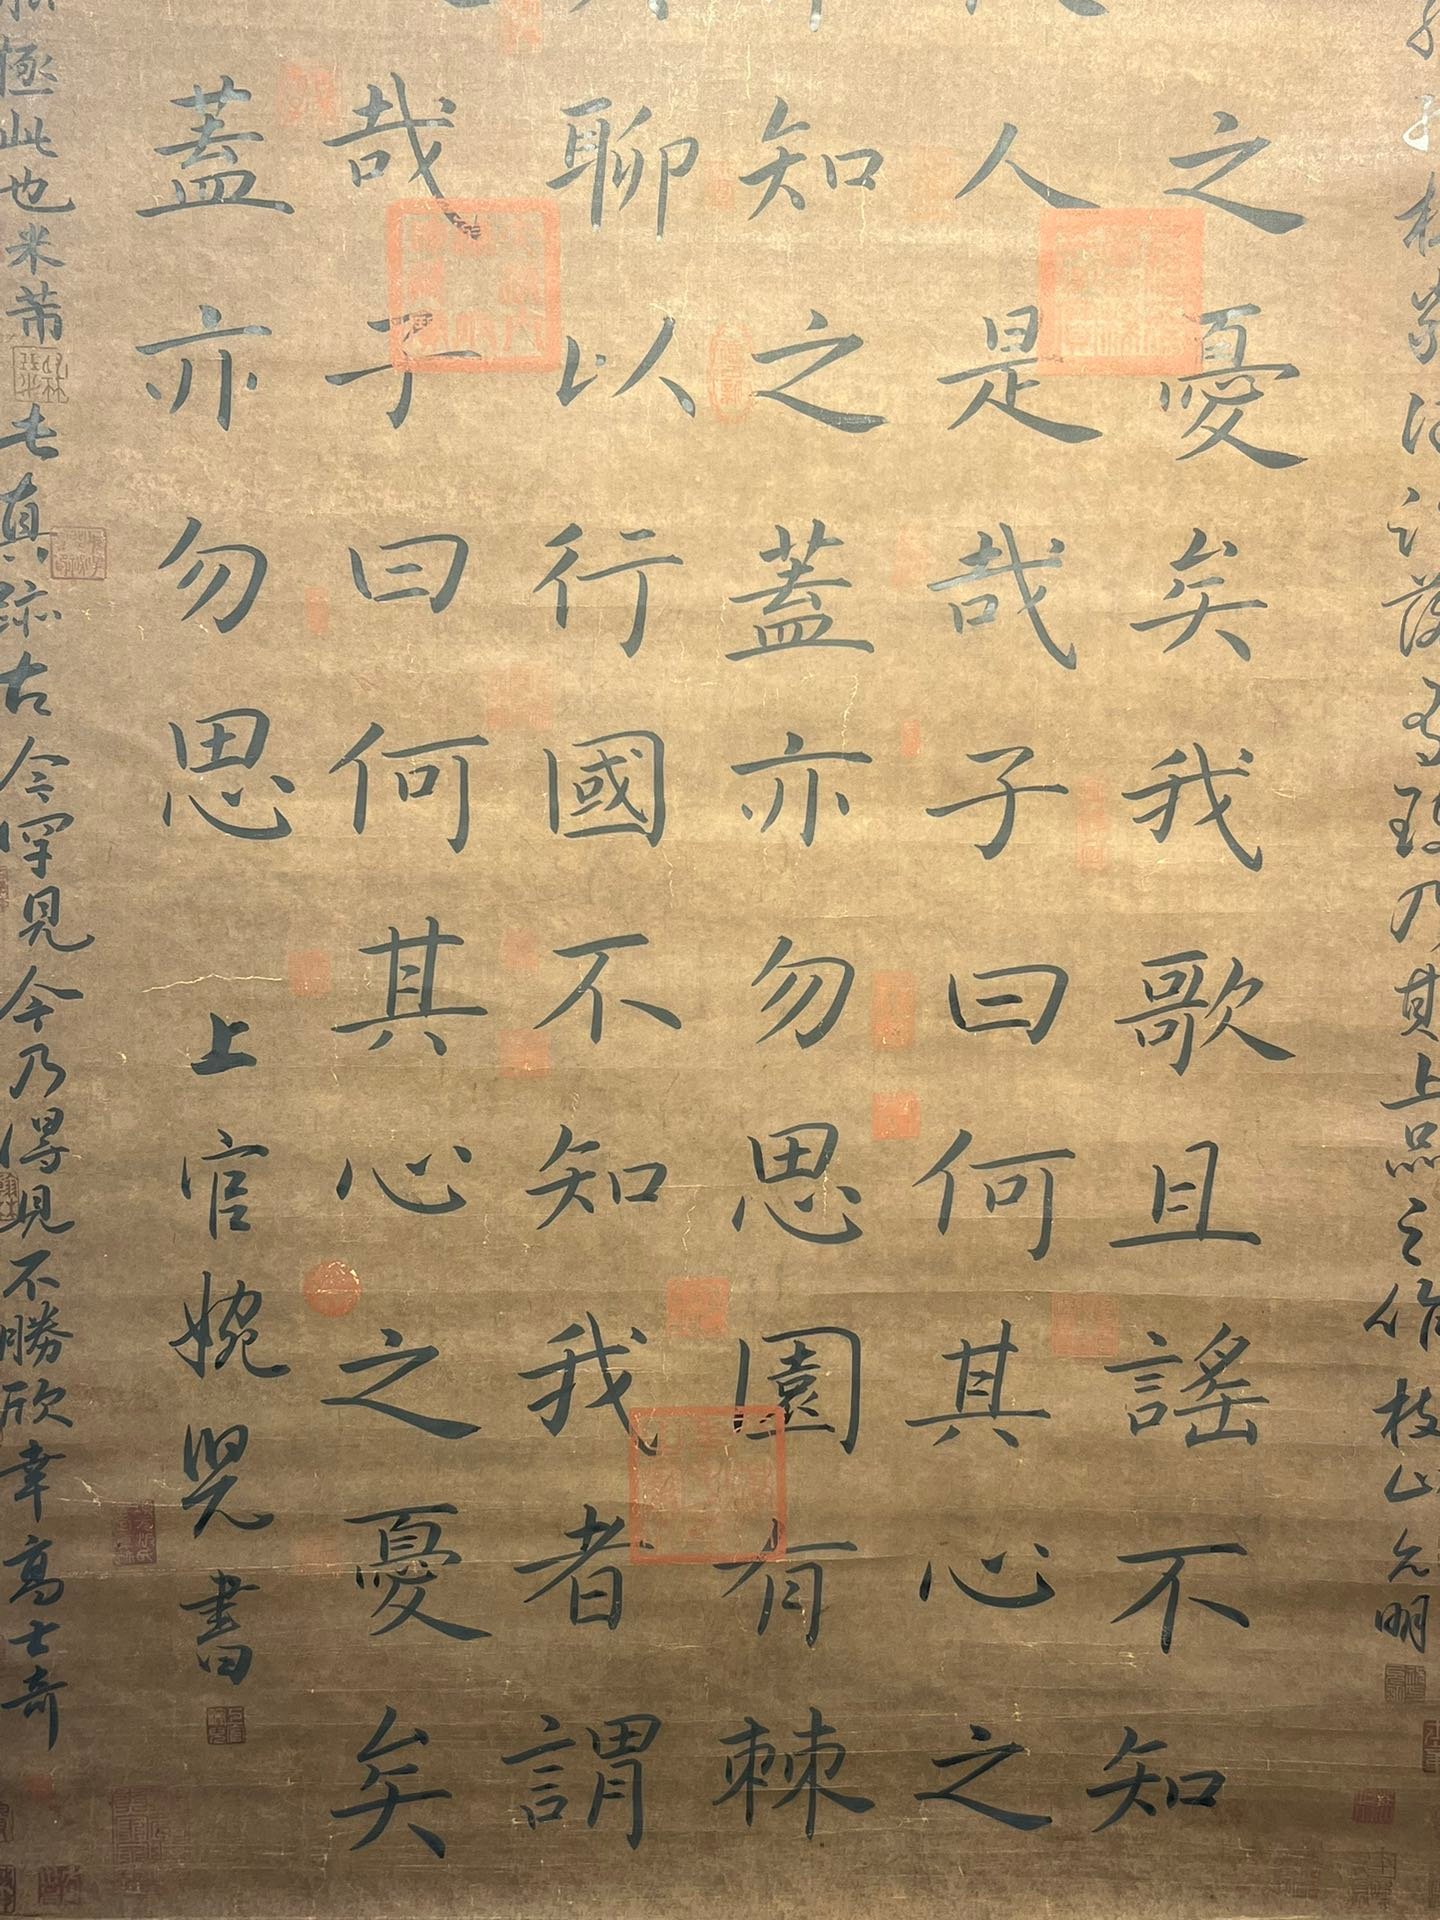 之憂矣我歌且謠不知
人是哉子曰何其心之
知之蓋亦勿思園有棘
聊以行國不知我者謂
哉子曰何其心之憂矣
蓋亦勿思
上官婉兒書
極此也米芾
真跡古今罕見今乃得見不勝欣幸高士奇
乃其上品之作枝山允明